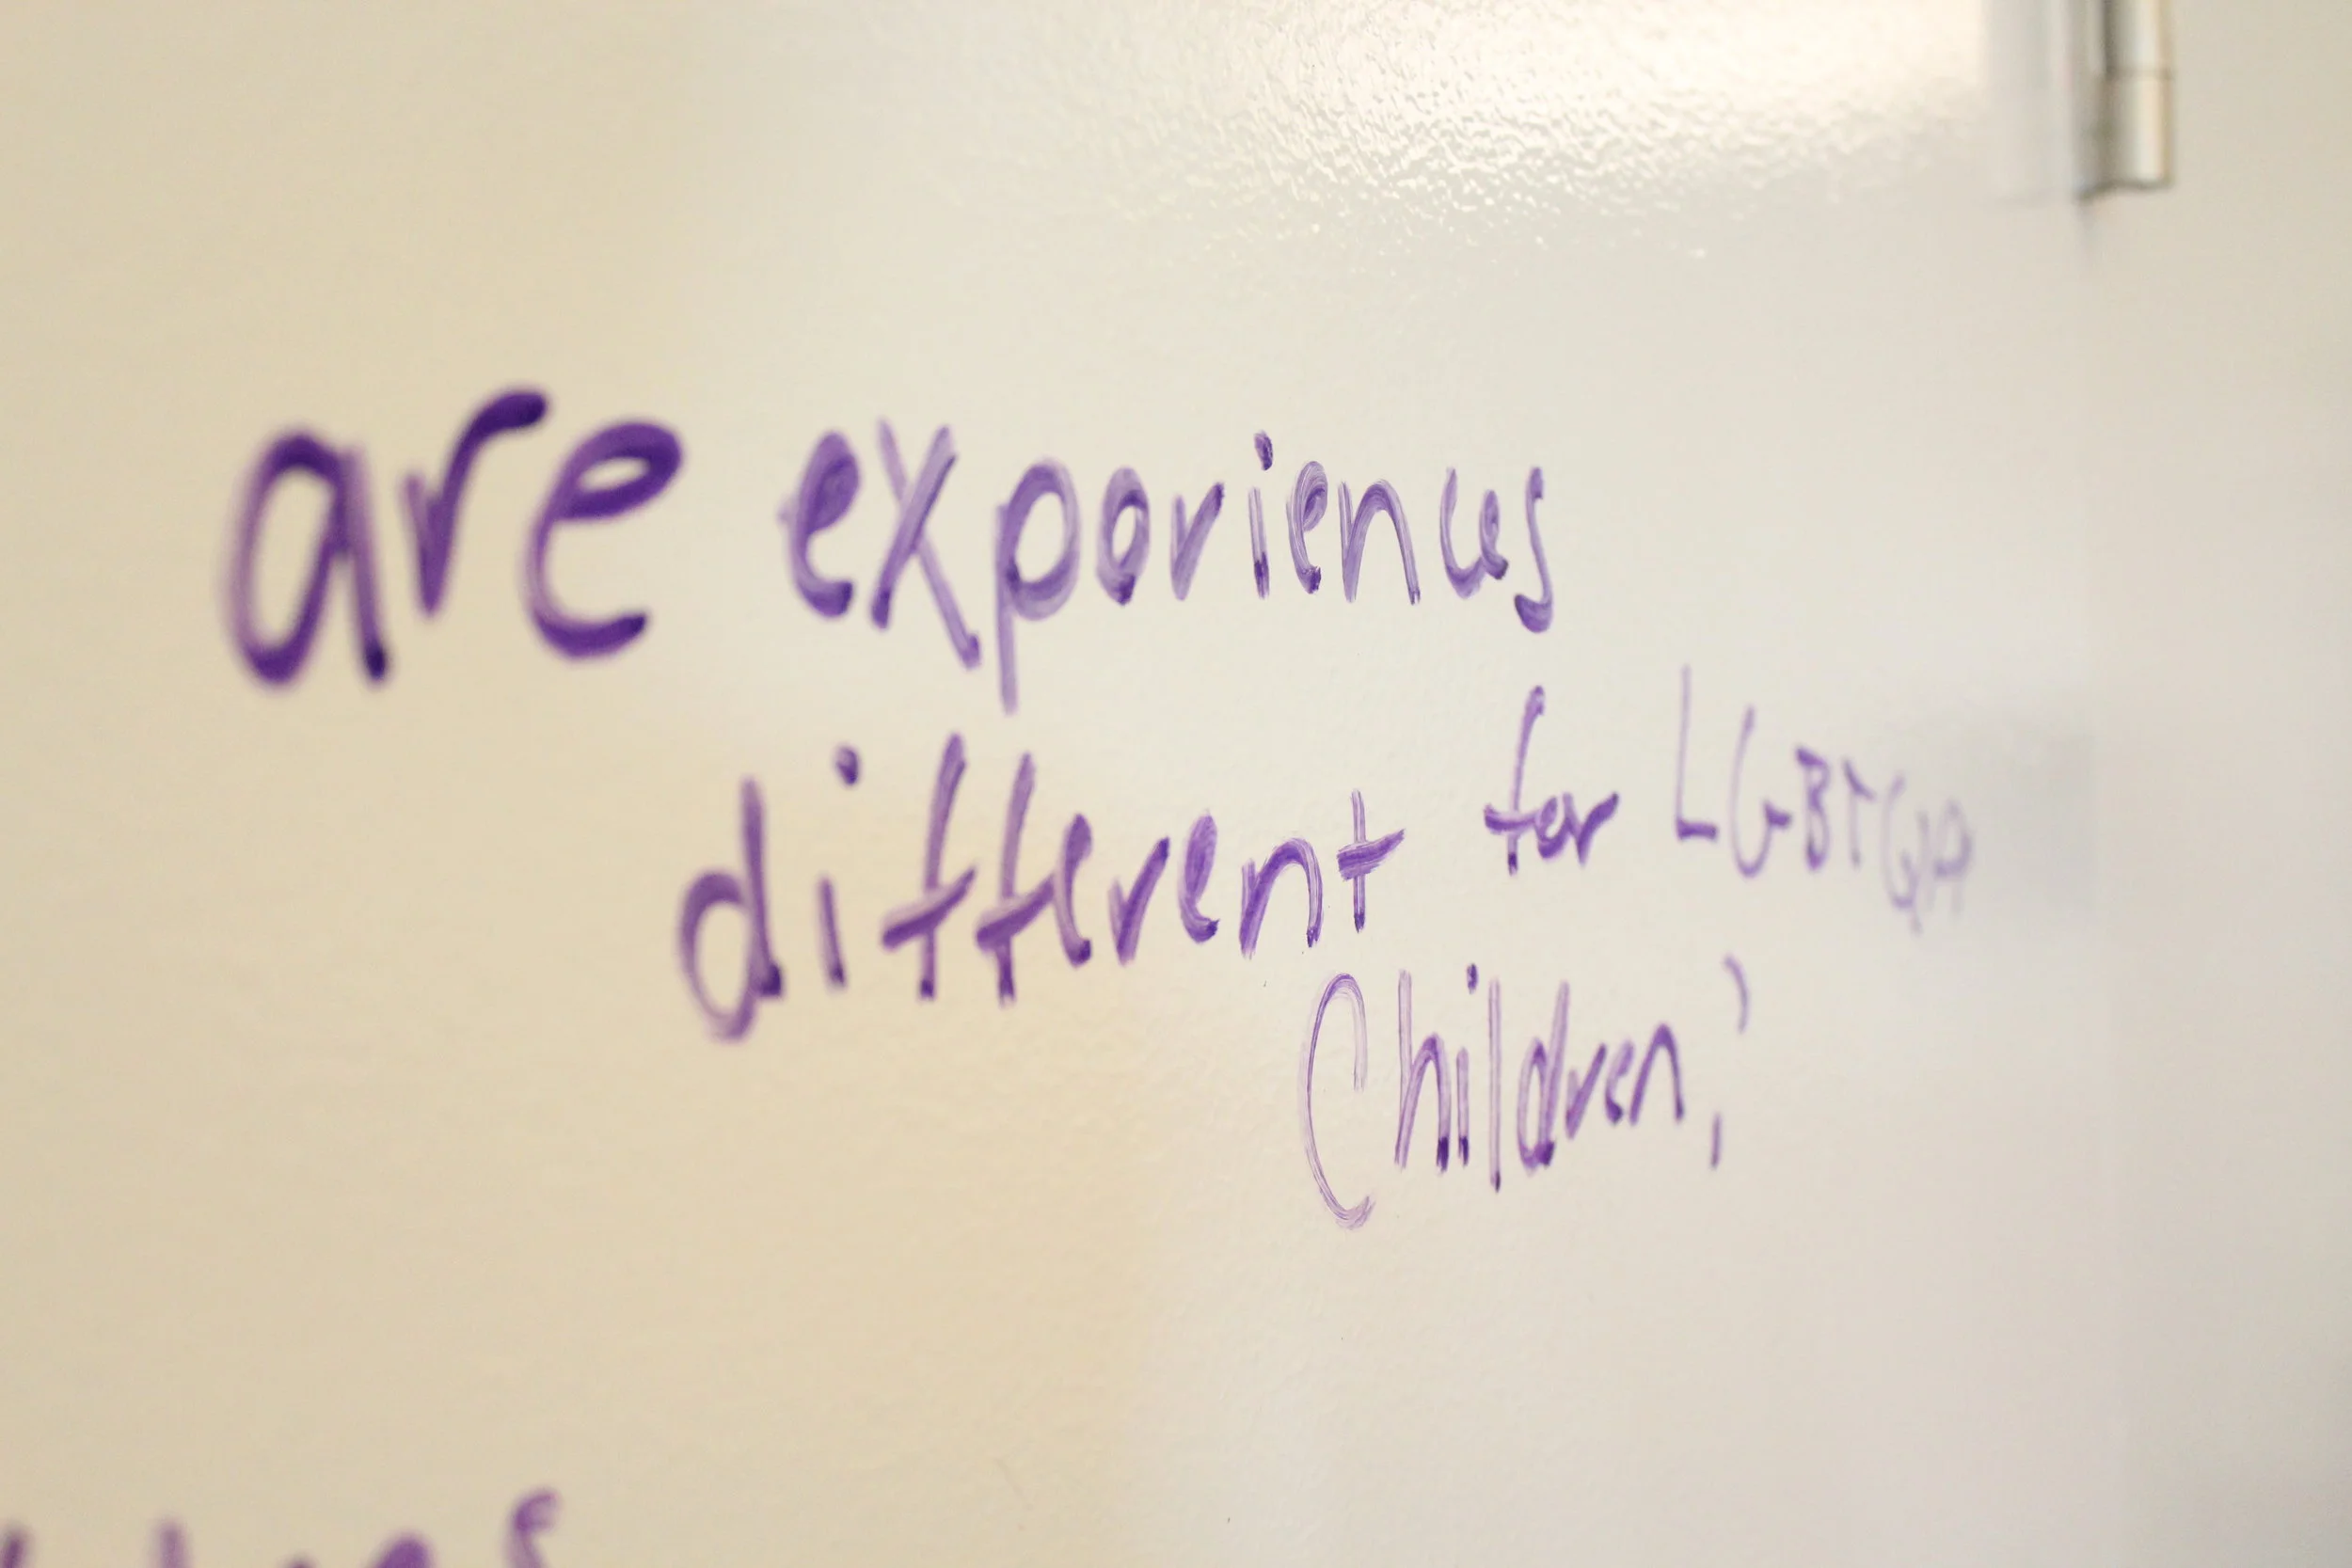 are experiences
different for LGBTQA
Children?